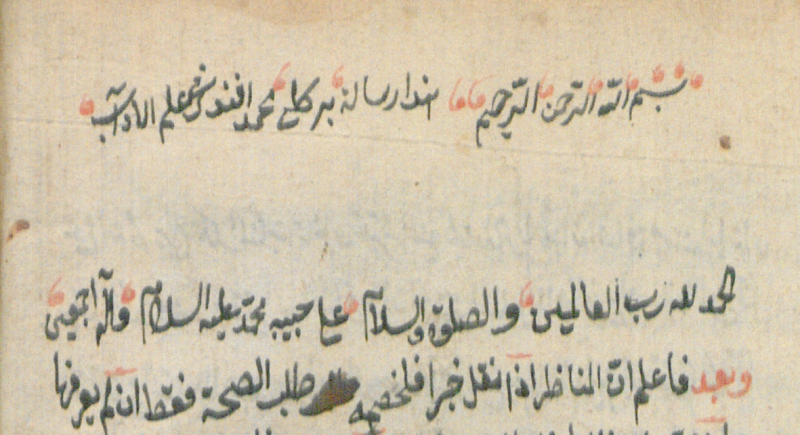 بسم الله الرحمن الرحيم هذا رسالة بركلي محمد افندى في علم الاداب
الحمد لله رب العالمين والصلوة والسلام على حبيبه محمد عليه السلام وآله اجمعين
وبعد فاعلم ان المناظر اذا نقل خبرا فلخصمه طلب الصحة فقط ان لم يعرفها